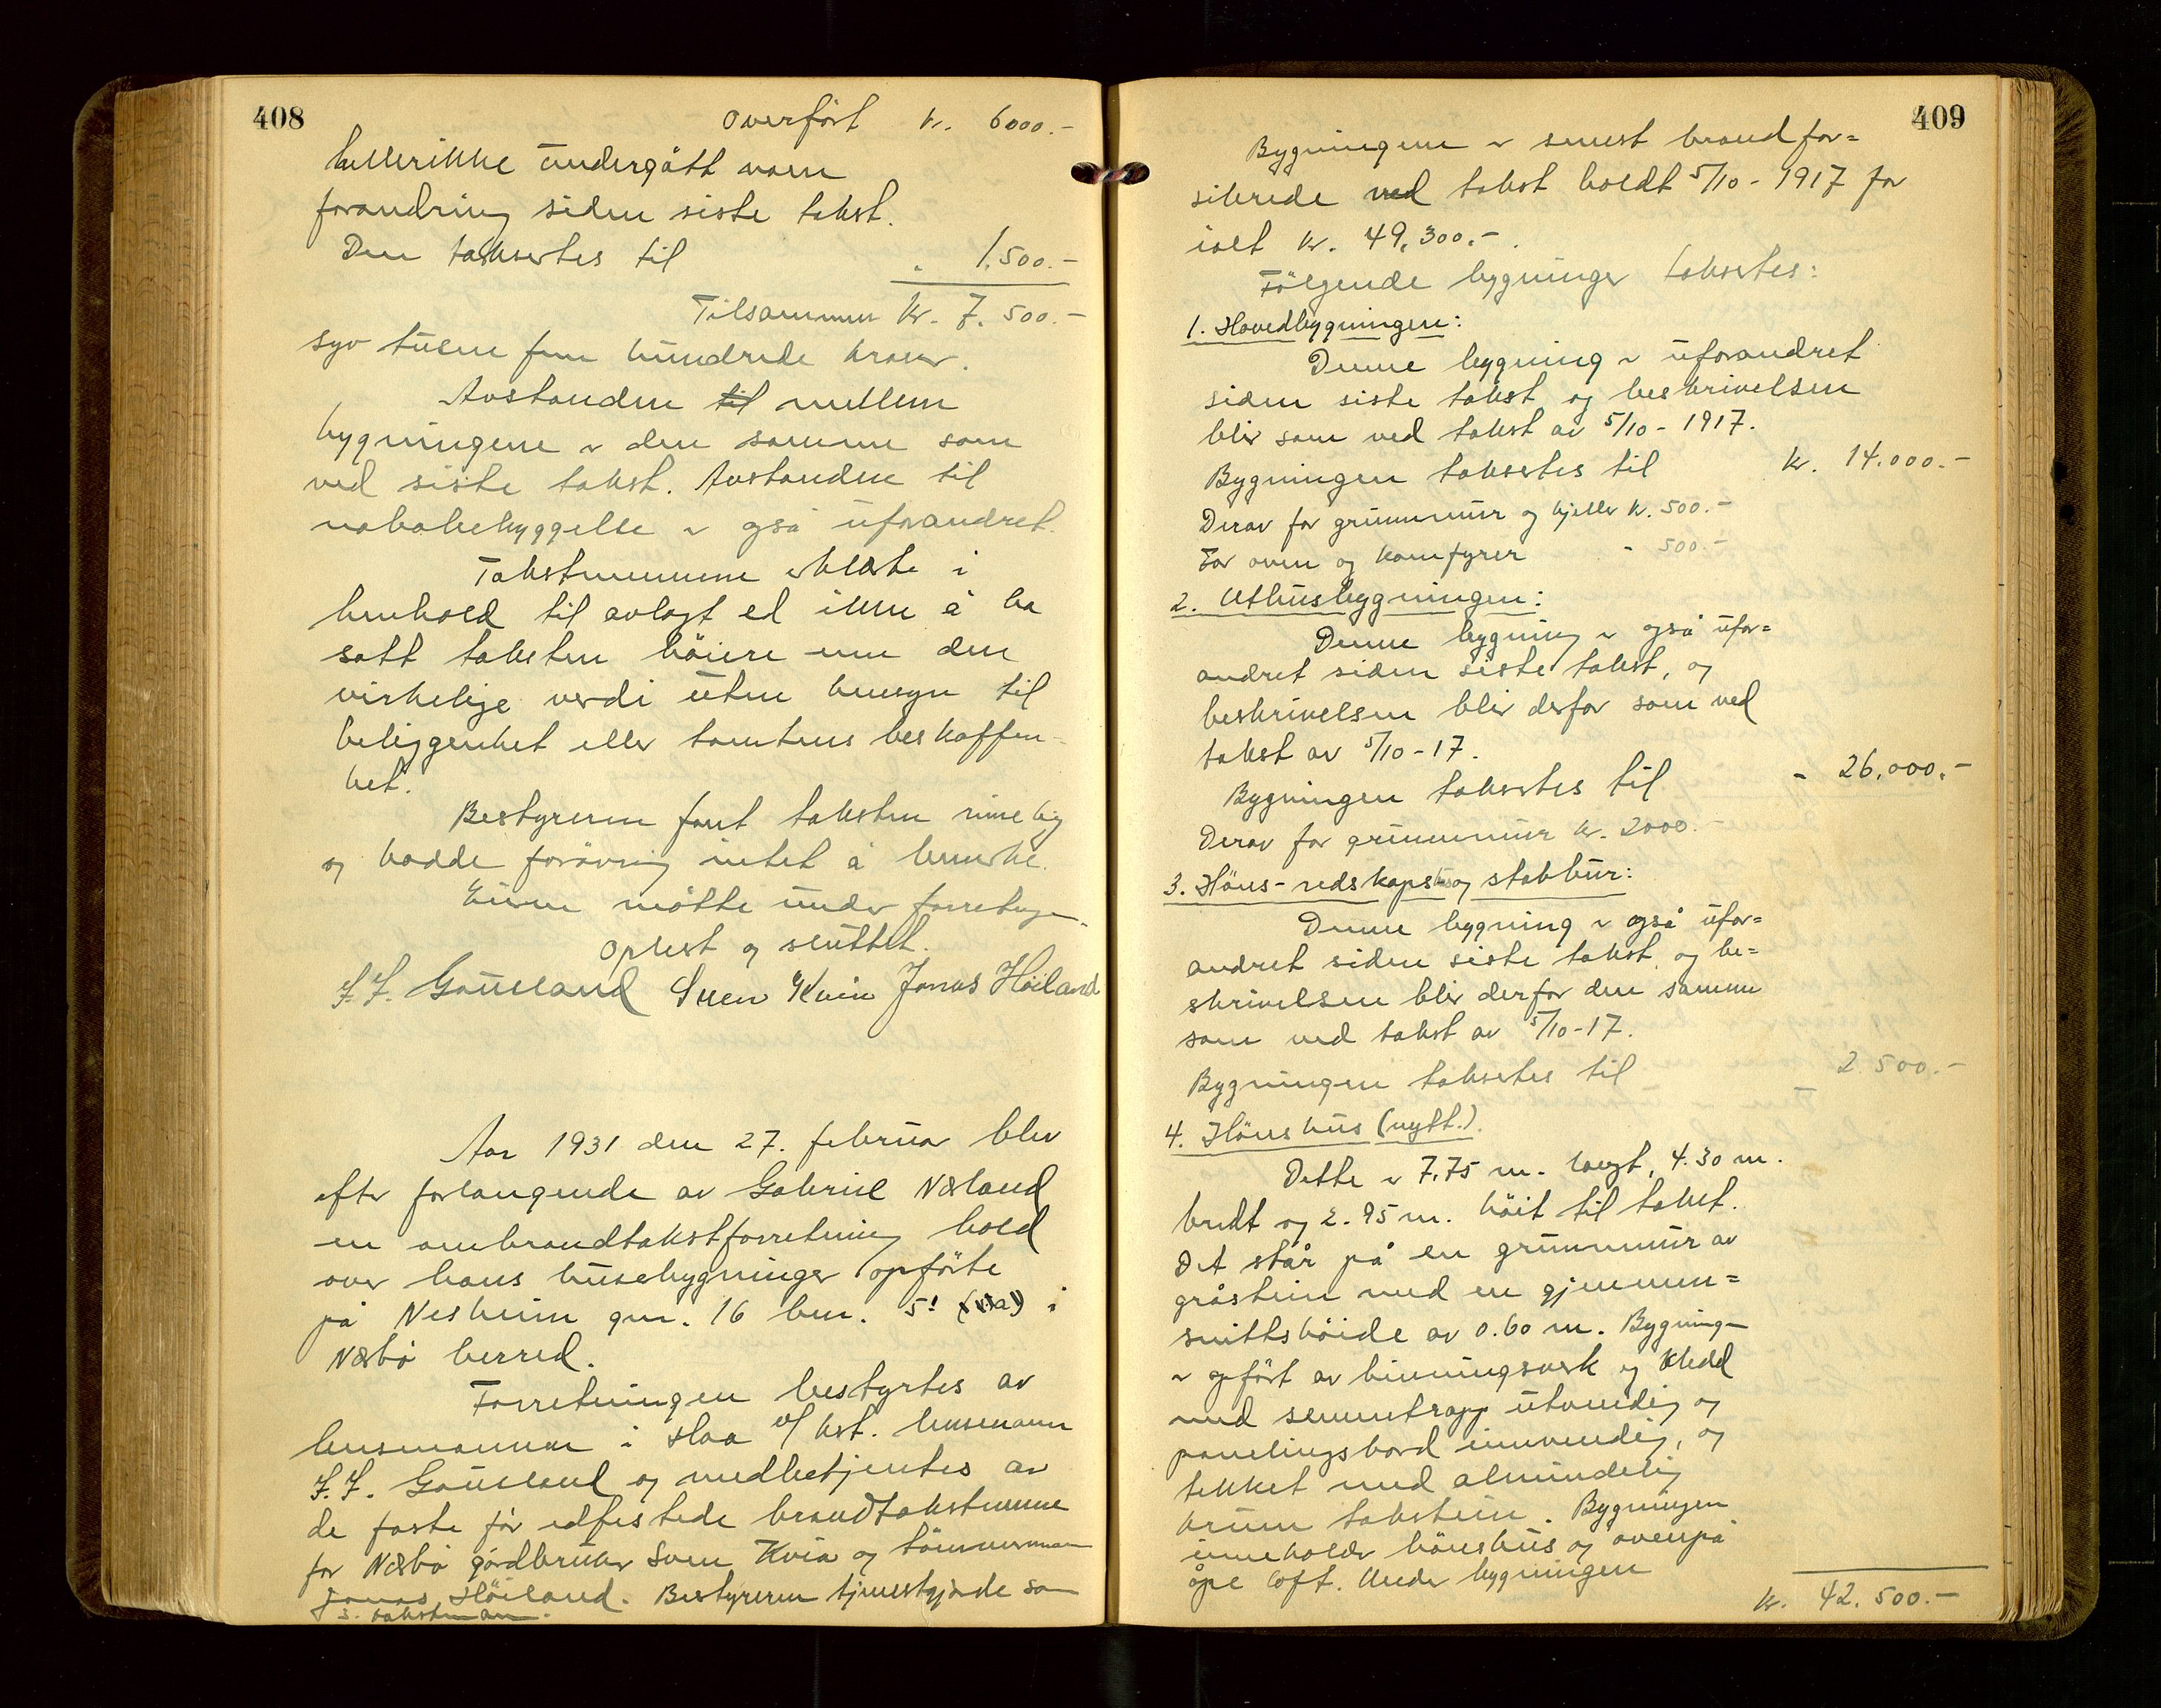 408
Overført kr. 6000.-
hellerikke undergått noen
forandring siden siste takst.
Den taksertes til " 1.500.-
Tilsammen kr. 7.500.-
syv tusen fem hundrede kroner.
Avstanden til mellem
bygningene er den samme som
ved siste takst. Avstanden til
nabobebyggelse er også uforandret.
Takstmennene erklærte i
henhold til avlagt ed ikke å ha
satt taksten höiere enn den
virkelige verdi uten hensyn til
beliggenhet eller tomtens beskaffen-
het.
Bestyreren fant taksten rimelig
og hadde forövrig intet å bemerke.
Eieren møtte under forretningen.
Oplest og sluttet.
F. F. Gauseland Sven Kvia Jonas Höiland
Aar 1931 den 27. februar blev
efter forlangende av Gabriel Næland
en ombrandtakstforretning hold
over hans husebygninger opførte
på Nesheim gnr. 16 bnr. 5! i
Nærbø herred.
Forretningen bestyrtes av
lensmannen i Haa v/ kst. lensmann
F. F. Gauseland og medbetjentes av
de faste før edfestede brandtakstmenne
for Nærbø gårdbruker Sven Kvia og tömmermann
Jonas Höiland. Bestyreren tjenestgjorde som
3. takstmann.
409
Bygningene er senest brandfor=
sikrede ved takst holdt 5/10 - 1917 for
ialt kr. 49.300.-.
Følgende bygninger taksertes:
1. Hovedbygningen:
Denne bygning er uforandret
siden siste takst og beskrivelsen
blir som ved takst av 5/10 - 1917.
Bygningen taksertes til kr. 14.000.-
Derav for grunnmur og kjeller kr. 500.-
For ovner og komfyrer " 500.-
2. Uthusbygningen:
Denne bygning er også ufor=
andret siden siste takst, og
beskrivelsen blir derfor som ved
takst av 5/10 - 17.
Bygningen taksertes til " 26.000.-
Derav for grunnmur kr. 2000.-
3. Höns- redskapshus og stabbur:
Denne bygning er også ufor=
andret siden siste takst, og be=
skrivelsen blir derfor den samme
som ved takst av 5/10 - 17.
Bygningen taksertes til 2.500.-
4. Hönshus (nytt.).
Dette er 7.75 m. langt, 4.30 m.
bredt og 2.95 m. höit til taket.
Det står på en grunnmur av
gråstein med en gjennem=
snittshöide av 0.60 m. Bygningen
er opført av binningsverk og kledd
med sementrapp utvendig og
panelingsbord innvendig, og
tekket med almindelig
krum takstein. Bygningen
inneholder hönshus og ovenpå
åpe loft. Under bygningen
kr. 42.500.-